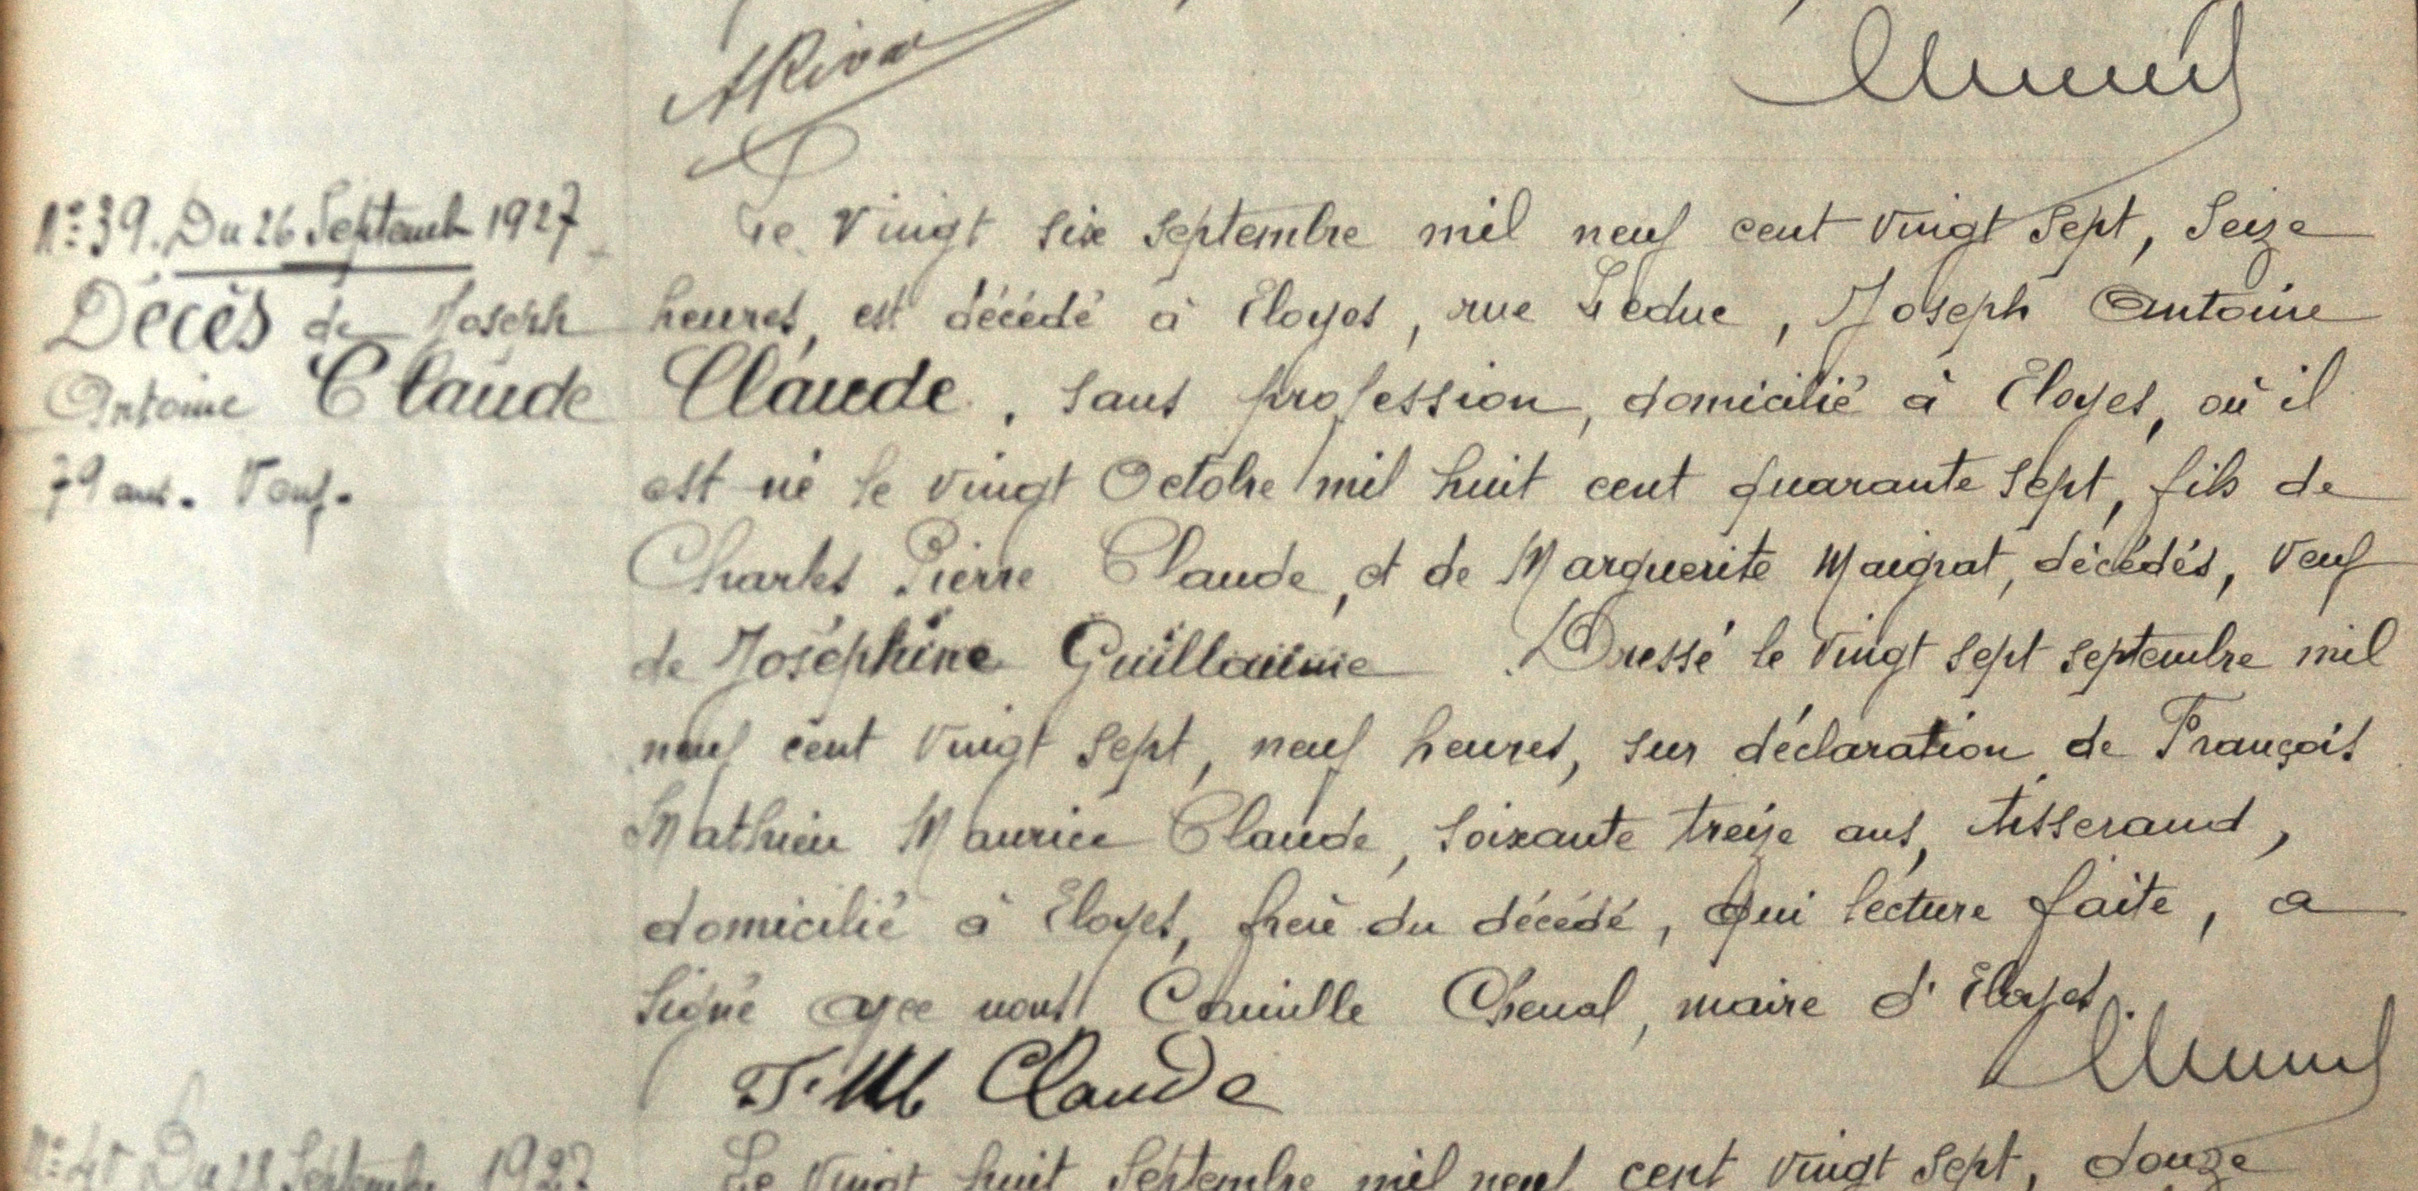 ARivat
N° 39. Du 26 Septemb 1927
Décès de Joseph
Antoine Claude
79 ans. Veuf.
Le vingt six septembre mil neuf cent vingt sept, seize
heures, est décédé à Eloyes, rue Leduc, Joseph Antoine
Claude, sans profession, domicilié à Eloyes, où il
est né le vingt Octobre mil huit cent quarante sept, fils de
Charles Pierre Claude, et de Marguerite Maigrat, décédés, veuf
de Joséphine Guillaume. Dressé le vingt sept septembre mil
neuf cent vingt sept, neuf heures, sur déclaration de François
Mathieu Maurice Claude, soixante treize ans, tisserand,
domicilié à Eloyes, frère du décédé, qui lecture faite, a
signé avec nous Camille Cheval, maire d'Eloyes.
F. M Claude
N° 40 Du 28 Septembre 1927
Le vingt huit Septembre mil neuf cent vingt sept, douze